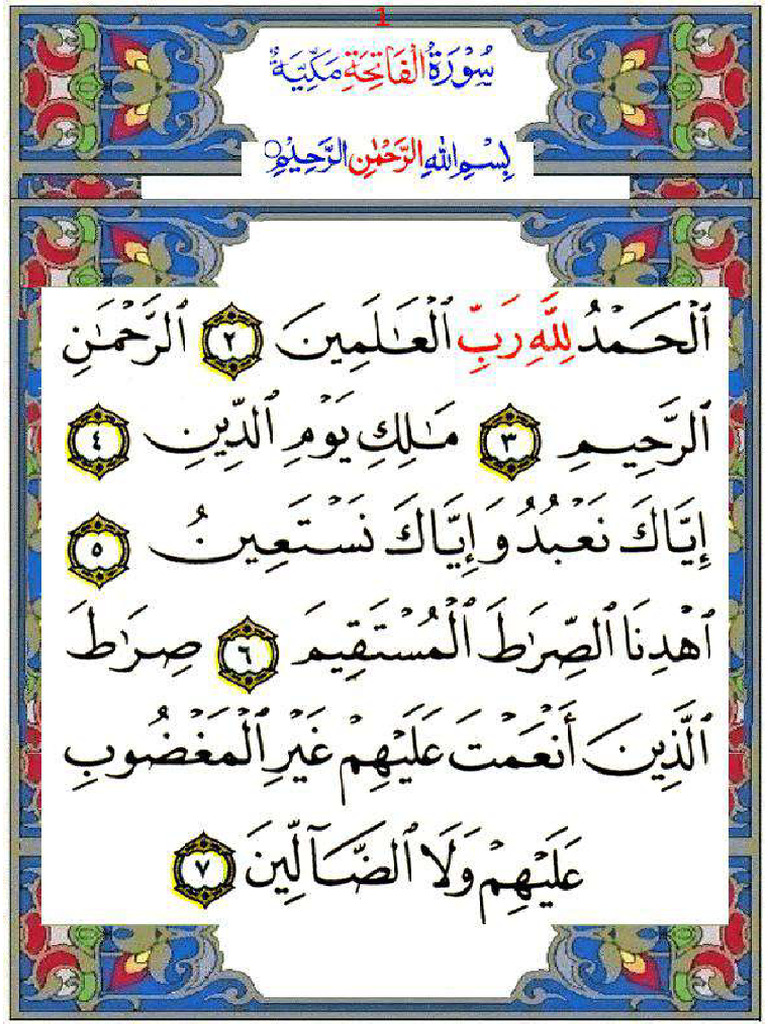 1
سُوْرَةُ الْفَاتِحَةِ مَكِّيَةٌ
بِسْمِ اللهِ الرَّحْمٰنِ الرَّحِيْمِ
ٱلْحَمْدُ لِلَّهِ رَبِّ ٱلْعَٰلَمِينَ ٢ ٱلرَّحْمَٰنِ
ٱلرَّحِيمِ ٣ مَٰلِكِ يَوْمِ ٱلدِّينِ ٤
إِيَّاكَ نَعْبُدُ وَإِيَّاكَ نَسْتَعِينُ ٥
ٱهْدِنَا ٱلصِّرَٰطَ ٱلْمُسْتَقِيمَ ٦ صِرَٰطَ
ٱلَّذِينَ أَنْعَمْتَ عَلَيْهِمْ غَيْرِ ٱلْمَغْضُوبِ
عَلَيْهِمْ وَلَا ٱلضَّآلِّينَ ٧